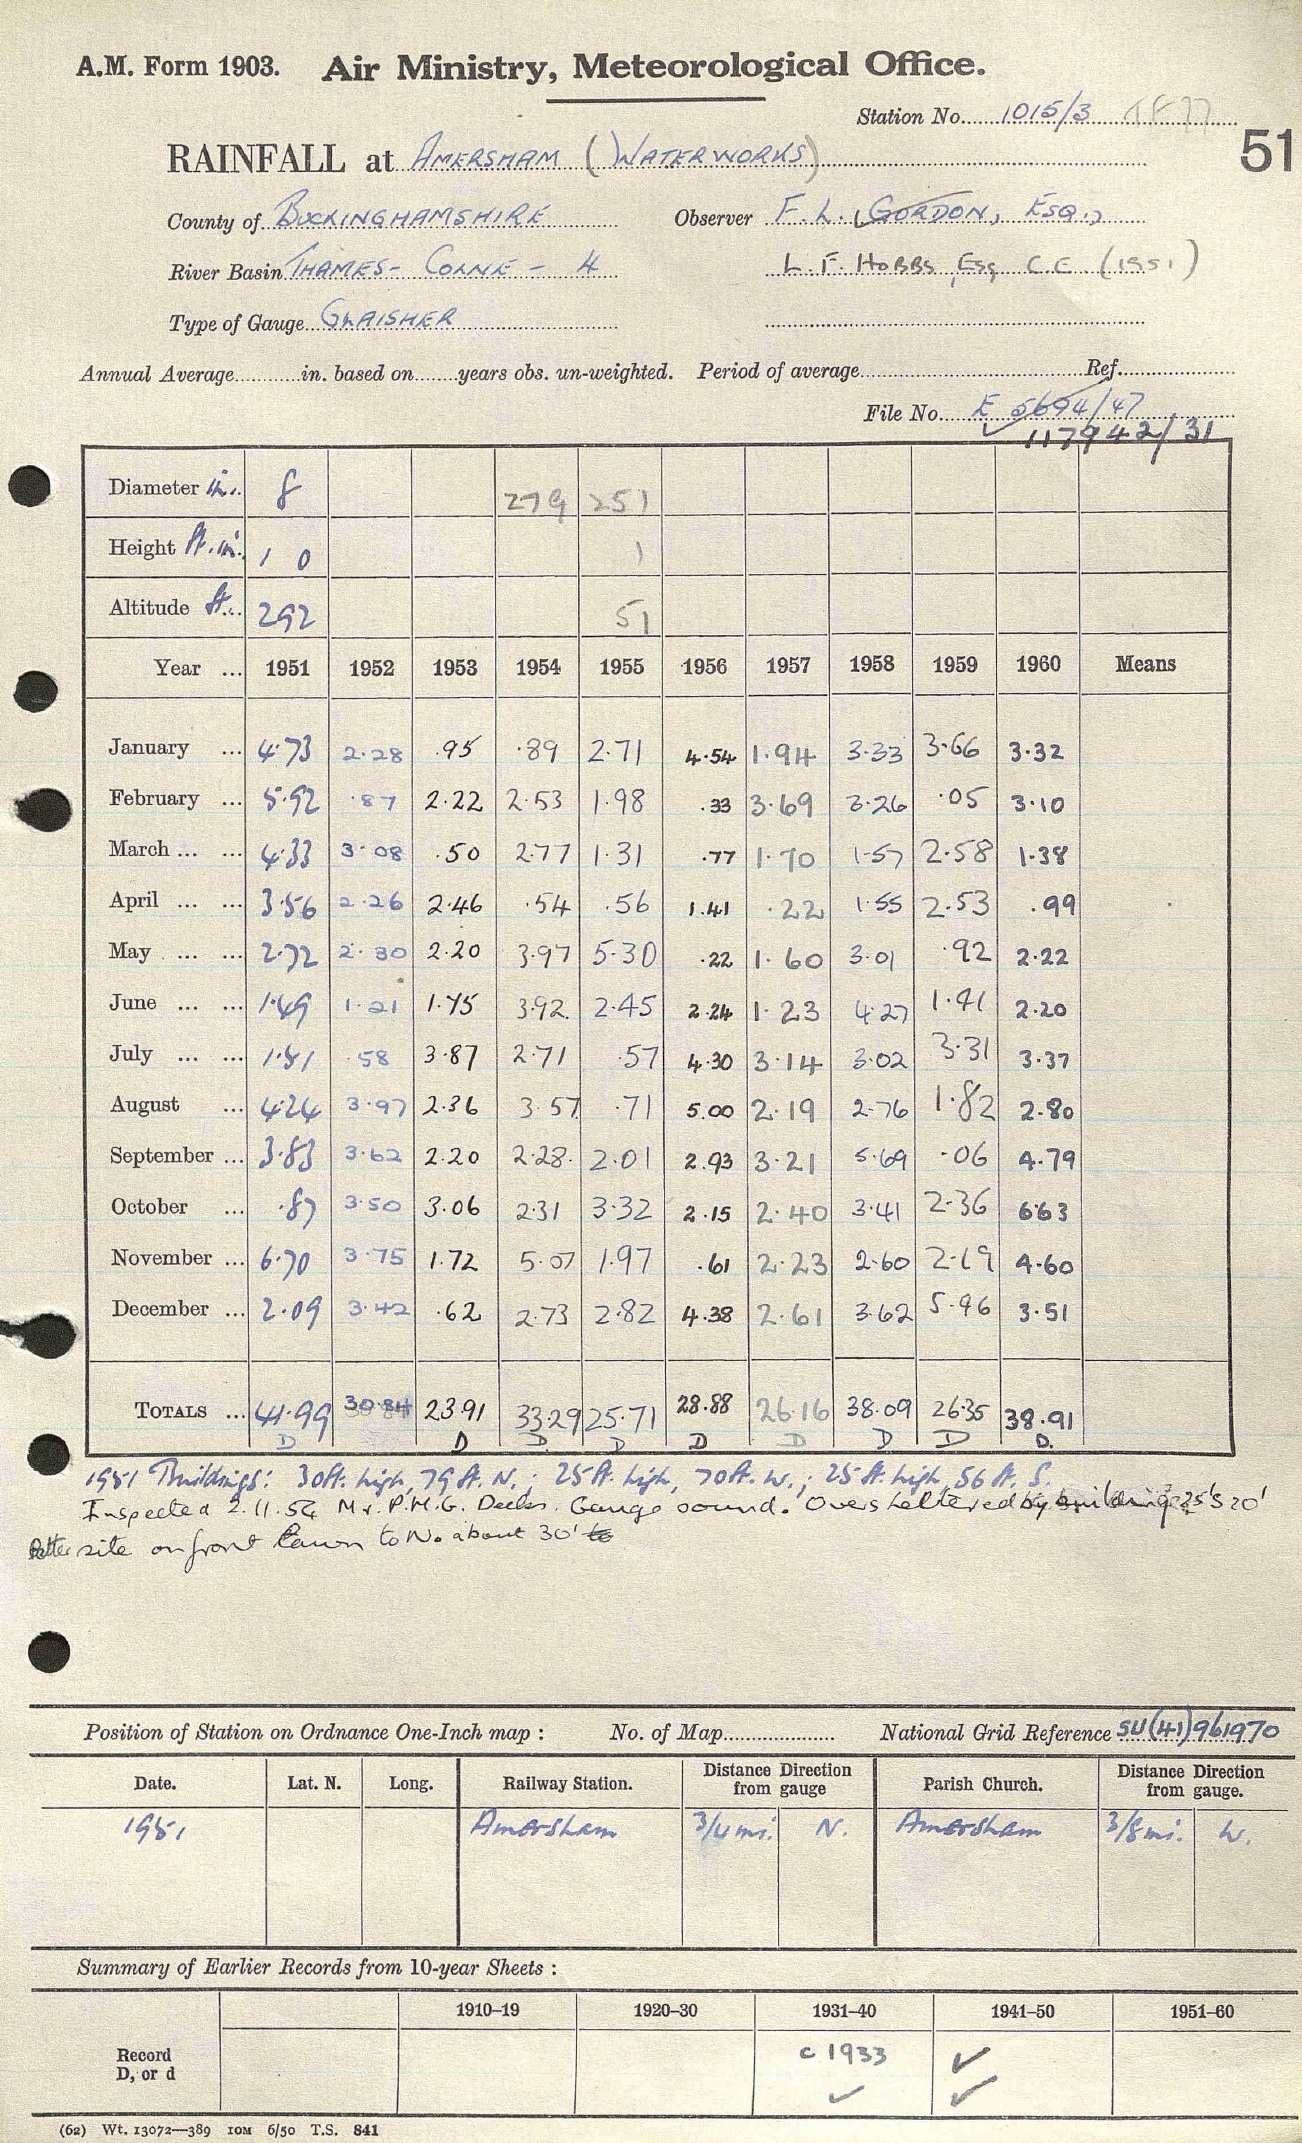 A.M. Form 1903. Air Ministry, Meteorological Office.
Station No. 1015/3
51
RAINFALL at AMERSHAM (WATERWORKS)
County of BUCKINGHAMSHIRE Observer F. L. GORDON, ESQ.,
River Basin THAMES - COLNE - 4 L. F. HOBBS, Esq C.E. (1951)
Type of Gauge GLAISHER
Annual Average in. based on years obs. un-weighted. Period of average Ref.
File No. E 5694/47
117942/31
Diameter in. 8 279 251
Height ft. in. 1 0 1
Altitude ft. 292 51
Year ... 1951 1952 1953 1954 1955 1956 1957 1958 1959 1960 Means
January ... 4.73 2.28 .95 .89 2.71 4.54 1.94 3.33 3.66 3.32
February ... 5.92 .87 2.22 2.53 1.98 .33 3.69 3.26 .05 3.10
March ... ... 4.33 3.08 .50 2.77 1.31 .77 1.70 1.57 2.58 1.38
April ... ... 3.56 2.26 2.46 .54 .56 1.41 .22 1.55 2.53 .99
May ... ... 2.72 2.30 2.20 3.97 5.30 .22 1.60 3.01 .92 2.22
June ... ... 1.49 1.21 1.75 3.92 2.45 2.24 1.23 4.27 1.41 2.20
July ... ... 1.51 .58 3.87 2.71 .57 4.30 3.14 3.02 3.31 3.37
August ... 4.24 3.97 2.36 3.57 .71 5.00 2.19 2.76 1.82 2.80
September ... 3.83 3.62 2.20 2.28 2.01 2.93 3.21 5.69 .06 4.79
October ... .87 3.50 3.06 2.31 3.32 2.15 2.40 3.41 2.36 6.63
November ... 6.70 3.75 1.72 5.07 1.97 .61 2.23 2.60 2.19 4.60
December ... 2.09 3.42 .62 2.73 2.82 4.38 2.61 3.62 5.46 3.51
TOTALS ... 41.99 30.84 23.91 33.29 25.71 28.88 26.16 38.09 26.35 38.91
D D D D D D D D D.
1951 Buildings: 30ft. high, 79ft. N.; 25ft. high, 70ft. W.; 25ft. high, 56ft. S.
Inspected 2.11.54 Mr. P.M.G. Gauge sound. Oversheltered by building 25'S 20'
Better site on front lawn to N. about 30'
Position of Station on Ordnance One-Inch map : No. of Map National Grid Reference SU(41)961970
Date. Lat. N. Long. Railway Station. Distance Direction from gauge Parish Church. Distance Direction from gauge.
1951 Amersham 3/4 mi. N. Amersham 3/8 mi. W.
Summary of Earlier Records from 10-year Sheets :
1910–19 1920–30 1931–40 1941–50 1951–60
Record c 1933 ✓
D, or d ✓ ✓
(62) Wt. 13072—389 10M 6/50 T.S. 841